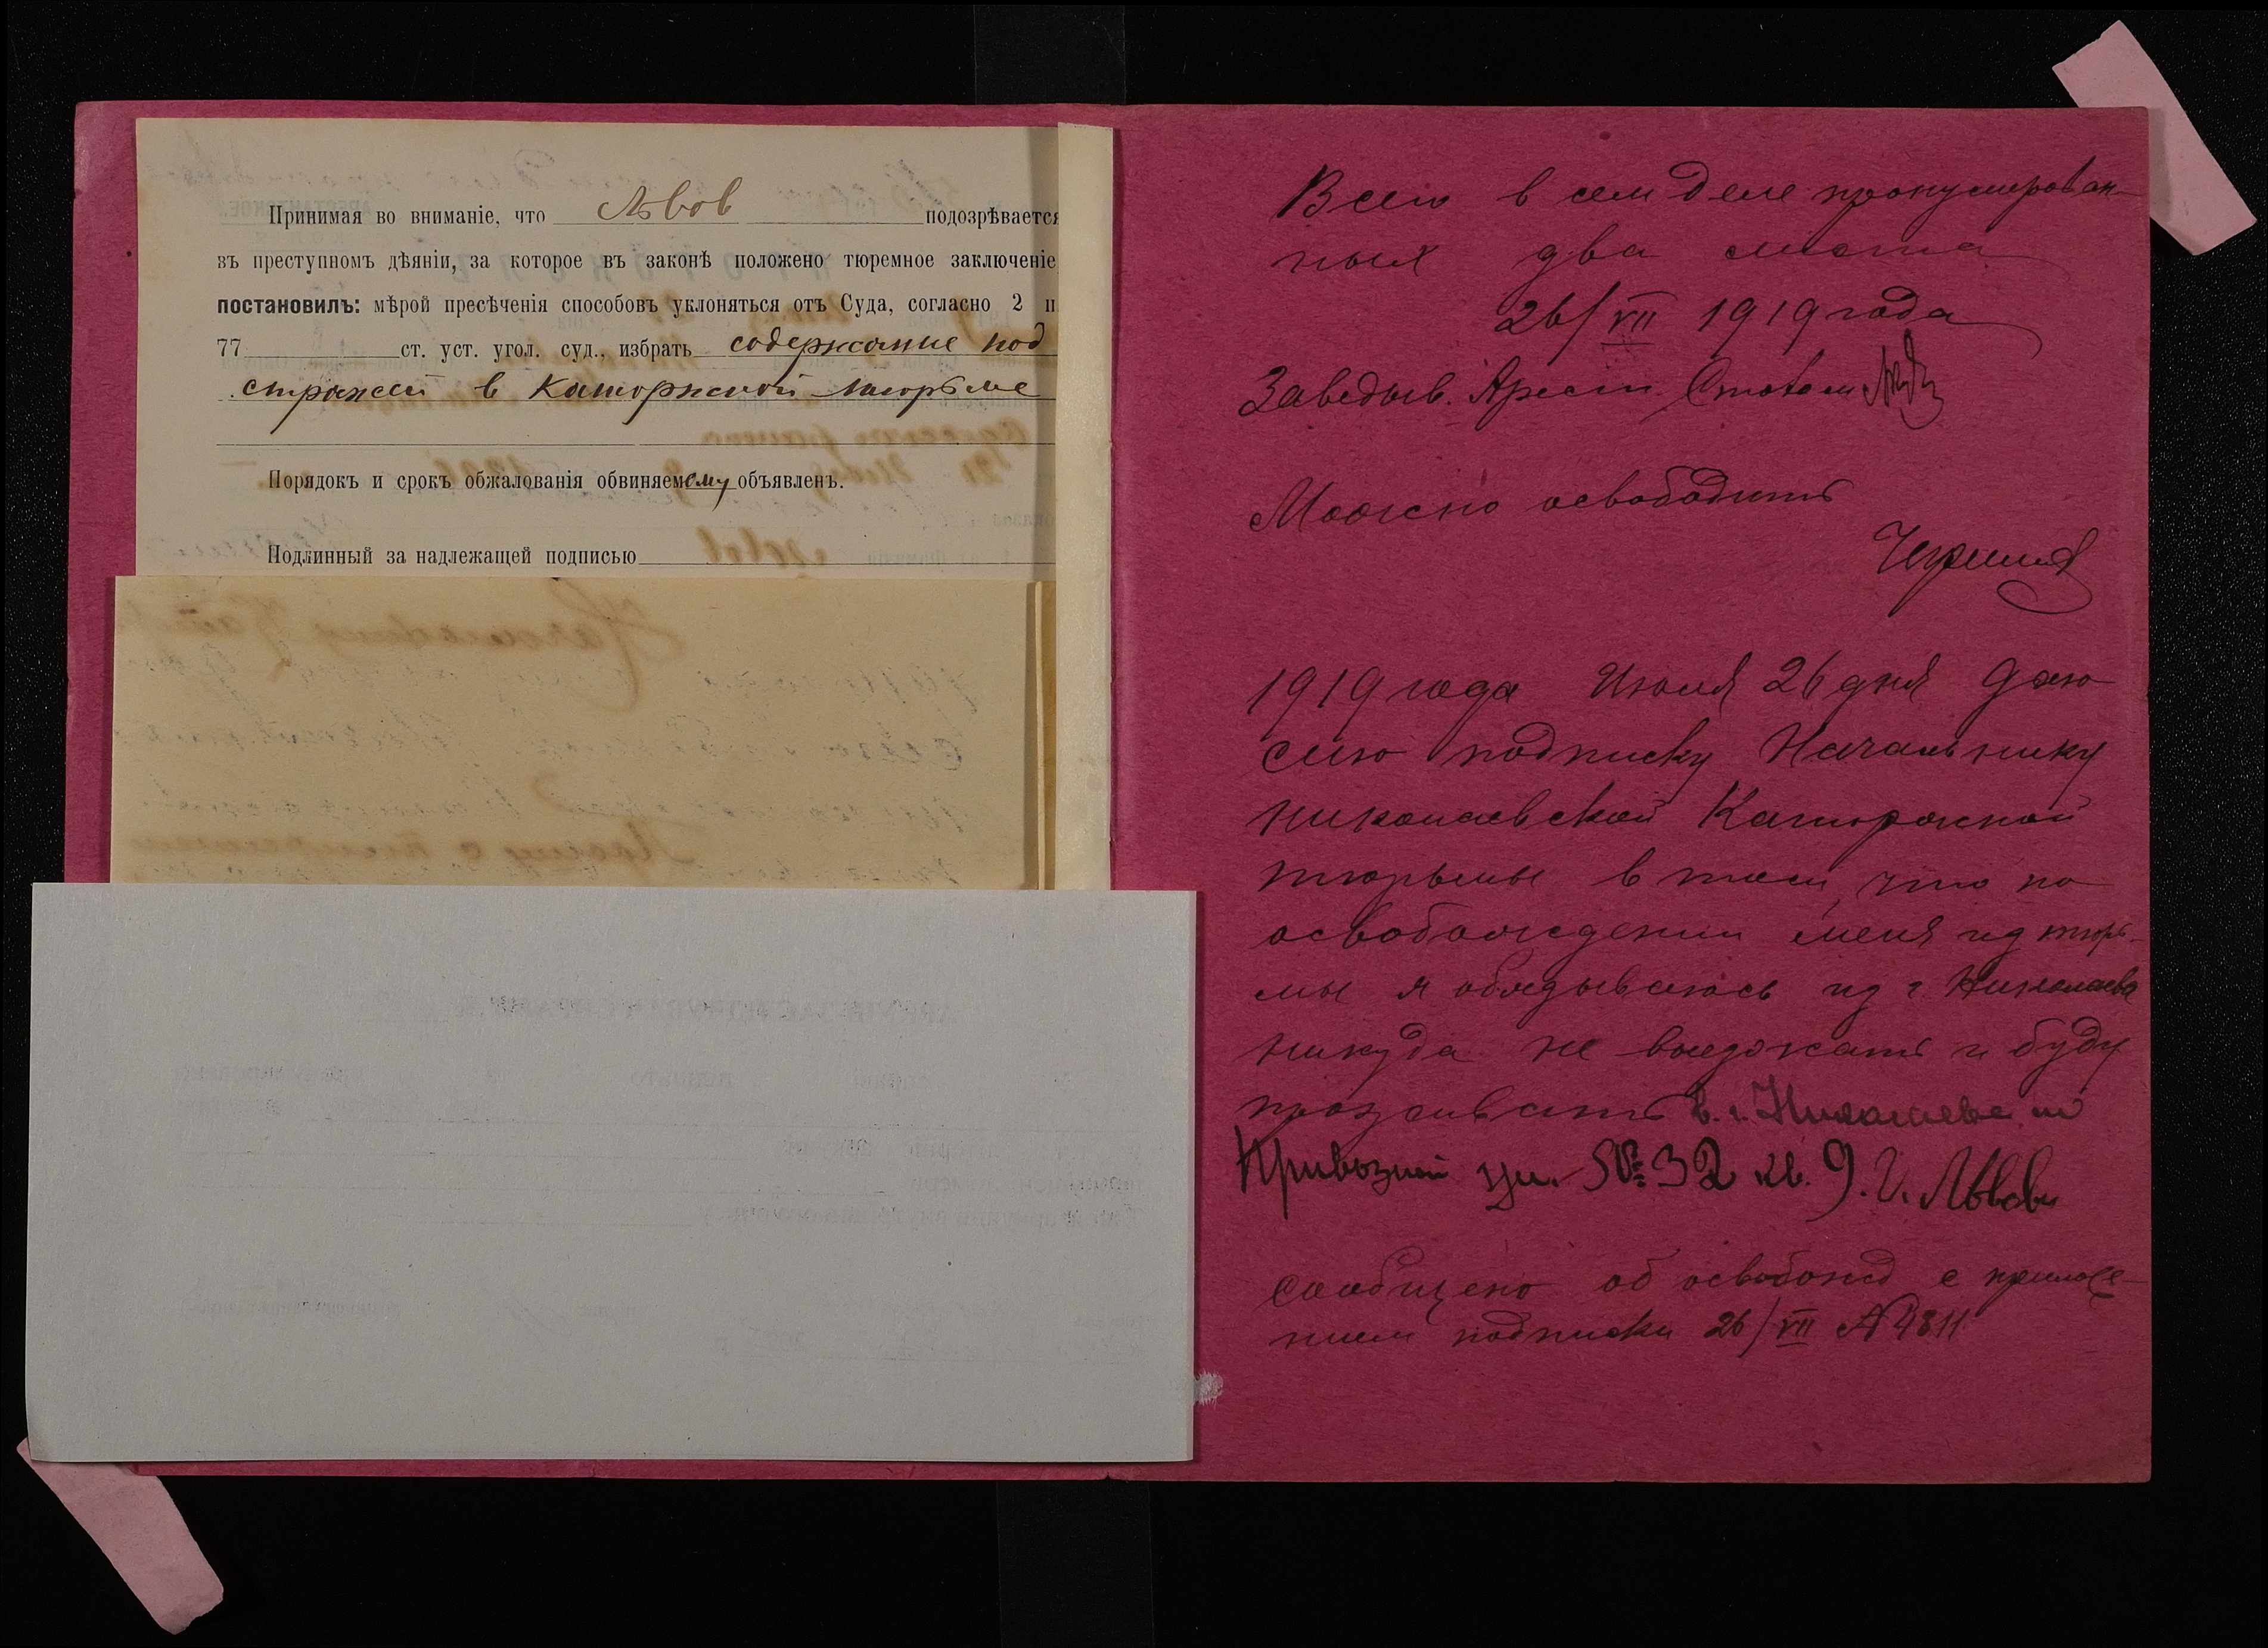 Принимая во вниманіе, что Львов подозрѣвается
въ преступномъ дѣяніи, за которое въ законѣ положено тюремное заключеніе
постановилъ: мѣрой пресѣченія способовъ уклоняться отъ Суда, согласно 2 п.
77 ст. уст. угол. суд., избрать содержание под
стражей в Каторжной тюрьме
Порядокъ и срокъ обжалованія обвиняемому объявленъ.
Подлинный за надлежащей подписью
Всего в сем деле пронумерован-
ных два листа
26/VII 1919 года
Заведыв. Арест. Столом
Можно освободить
1919 года Июля 26 дня даю
сию подписку Начальнику
Николаевской Каторжной
тюрьмы в том, что по
освобождении меня из тюрь-
мы я обязываюсь из г. Николаева
никуда не выезжать и буду
проживать в г. Николаеве по
Привозной ул. № 32 кв. 9. Львов
Сообщено об освобожд с приложе-
нием подписки 26/VII № 4811